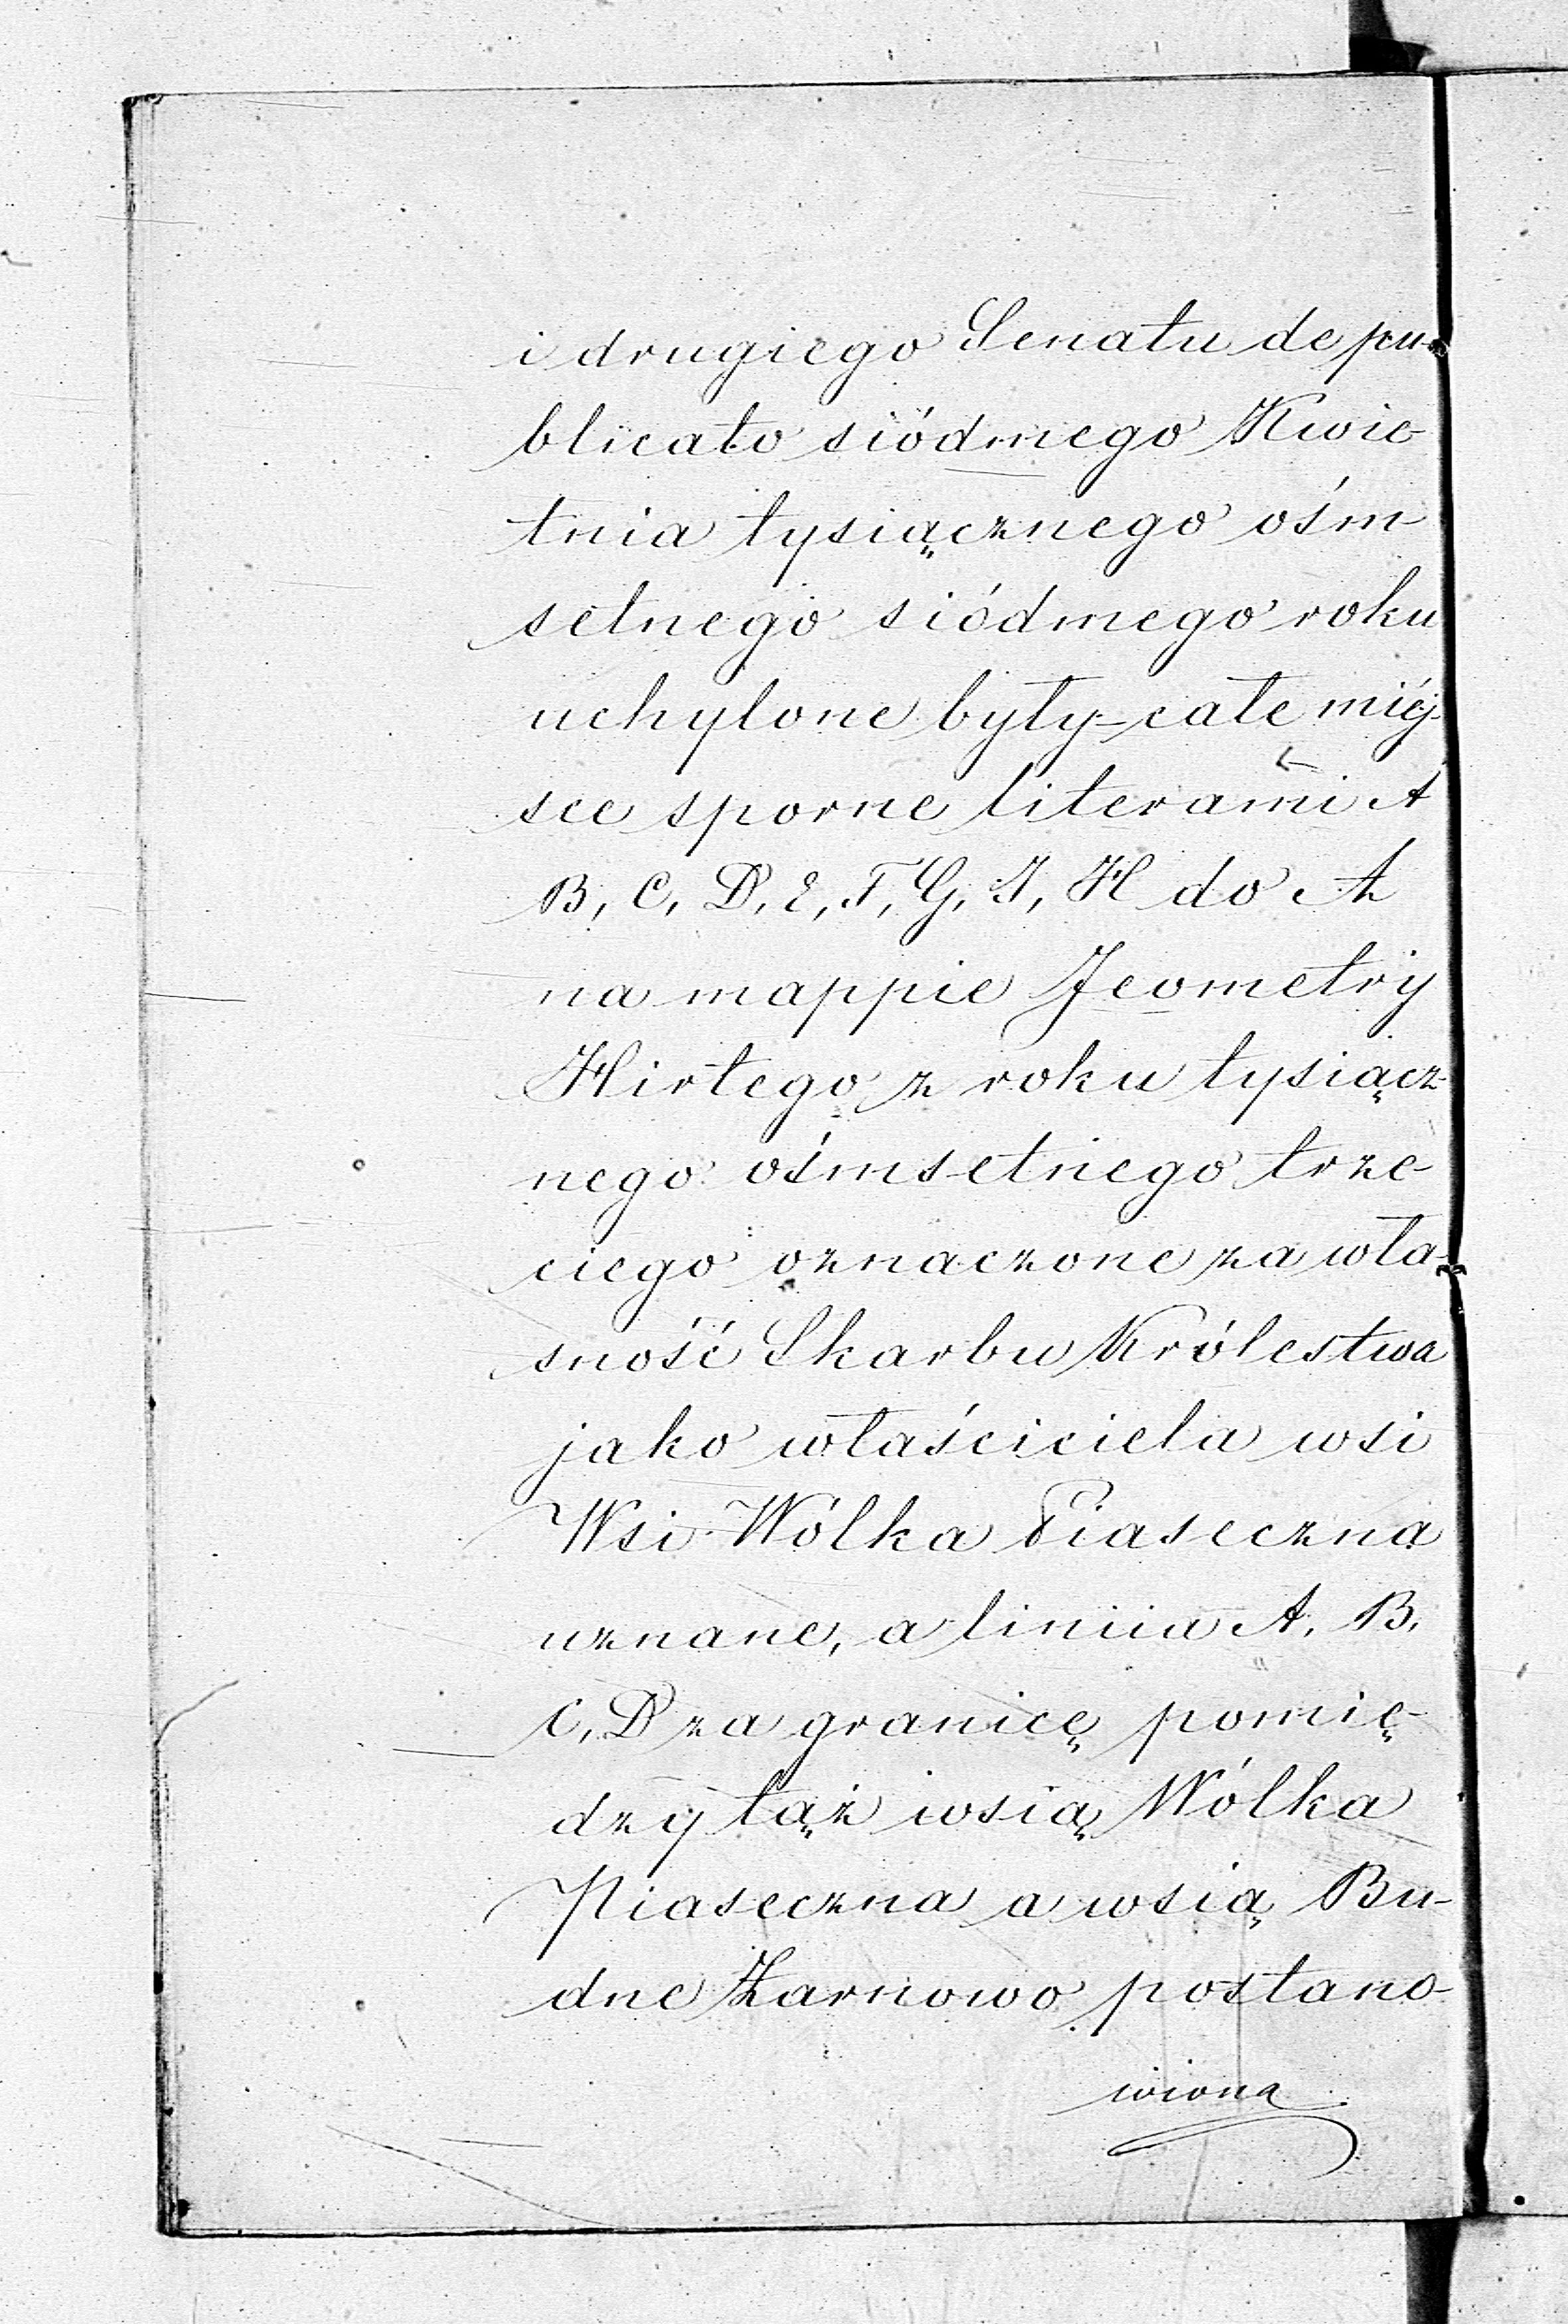 i drugiego Senatu de pu-
blicato siódmego Kwie-
tnia tysiącznego ośm-
setnego siódmego roku
uchylone były – całe miéj-
sce sporne literami A
B, C, D, E, F, G, I, H do A
na mappie Jeometry
Hirtego z roku tysiącz-
nego ośmsetnego trze-
ciego oznaczone za wła-
sność Skarbu Królestwa
jako właściciela wsi
Wsi Wólka Piaseczna
uznane, a liniia A, B,
C, D za granicę pomię-
dzy tąż wsią Wólka
Piaseczna a wsią Bu-
dne Żarnowo postano-
wiona